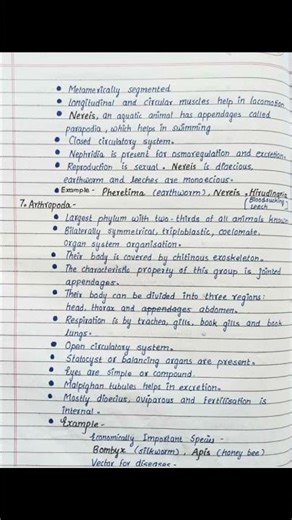 • Metamerically segmented
• Longitudinal and circular muscles help in locomotion
• Nereis, an aquatic animal has appendages called
parapodia, which helps in swimming
• Closed circulatory system.
• Nephridia is present for osmoregulation and excretion.
• Reproduction is sexual. Nereis is dioecious,
earthworm and leeches are monoecious.
• Example - Pheretima (earthworm), Nereis, Hirudinaria
(Bloodsucking leech)
7. Arthropoda -
• Largest phylum with two-thirds of all animals known
• Bilaterally symmetrical, triploblastic, coelomate,
organ system organisation.
• Their body is covered by chitinous exoskeleton.
• The characteristic property of this group is jointed
appendages.
• Their body can be divided into three regions:
head, thorax and appendages abdomen.
• Respiration is by trachea, gills, book gills and book
lungs.
• Open circulatory system.
• Statocyst or balancing organs are present.
• Eyes are simple or compound.
• Malpighan tubules helps in excretion.
• Mostly dioecius, oviparous and fertilisation is
internal.
• Example -
Economically Important Species -
Bombyx (silkworm), Apis (honey bee)
Vector for diseases -